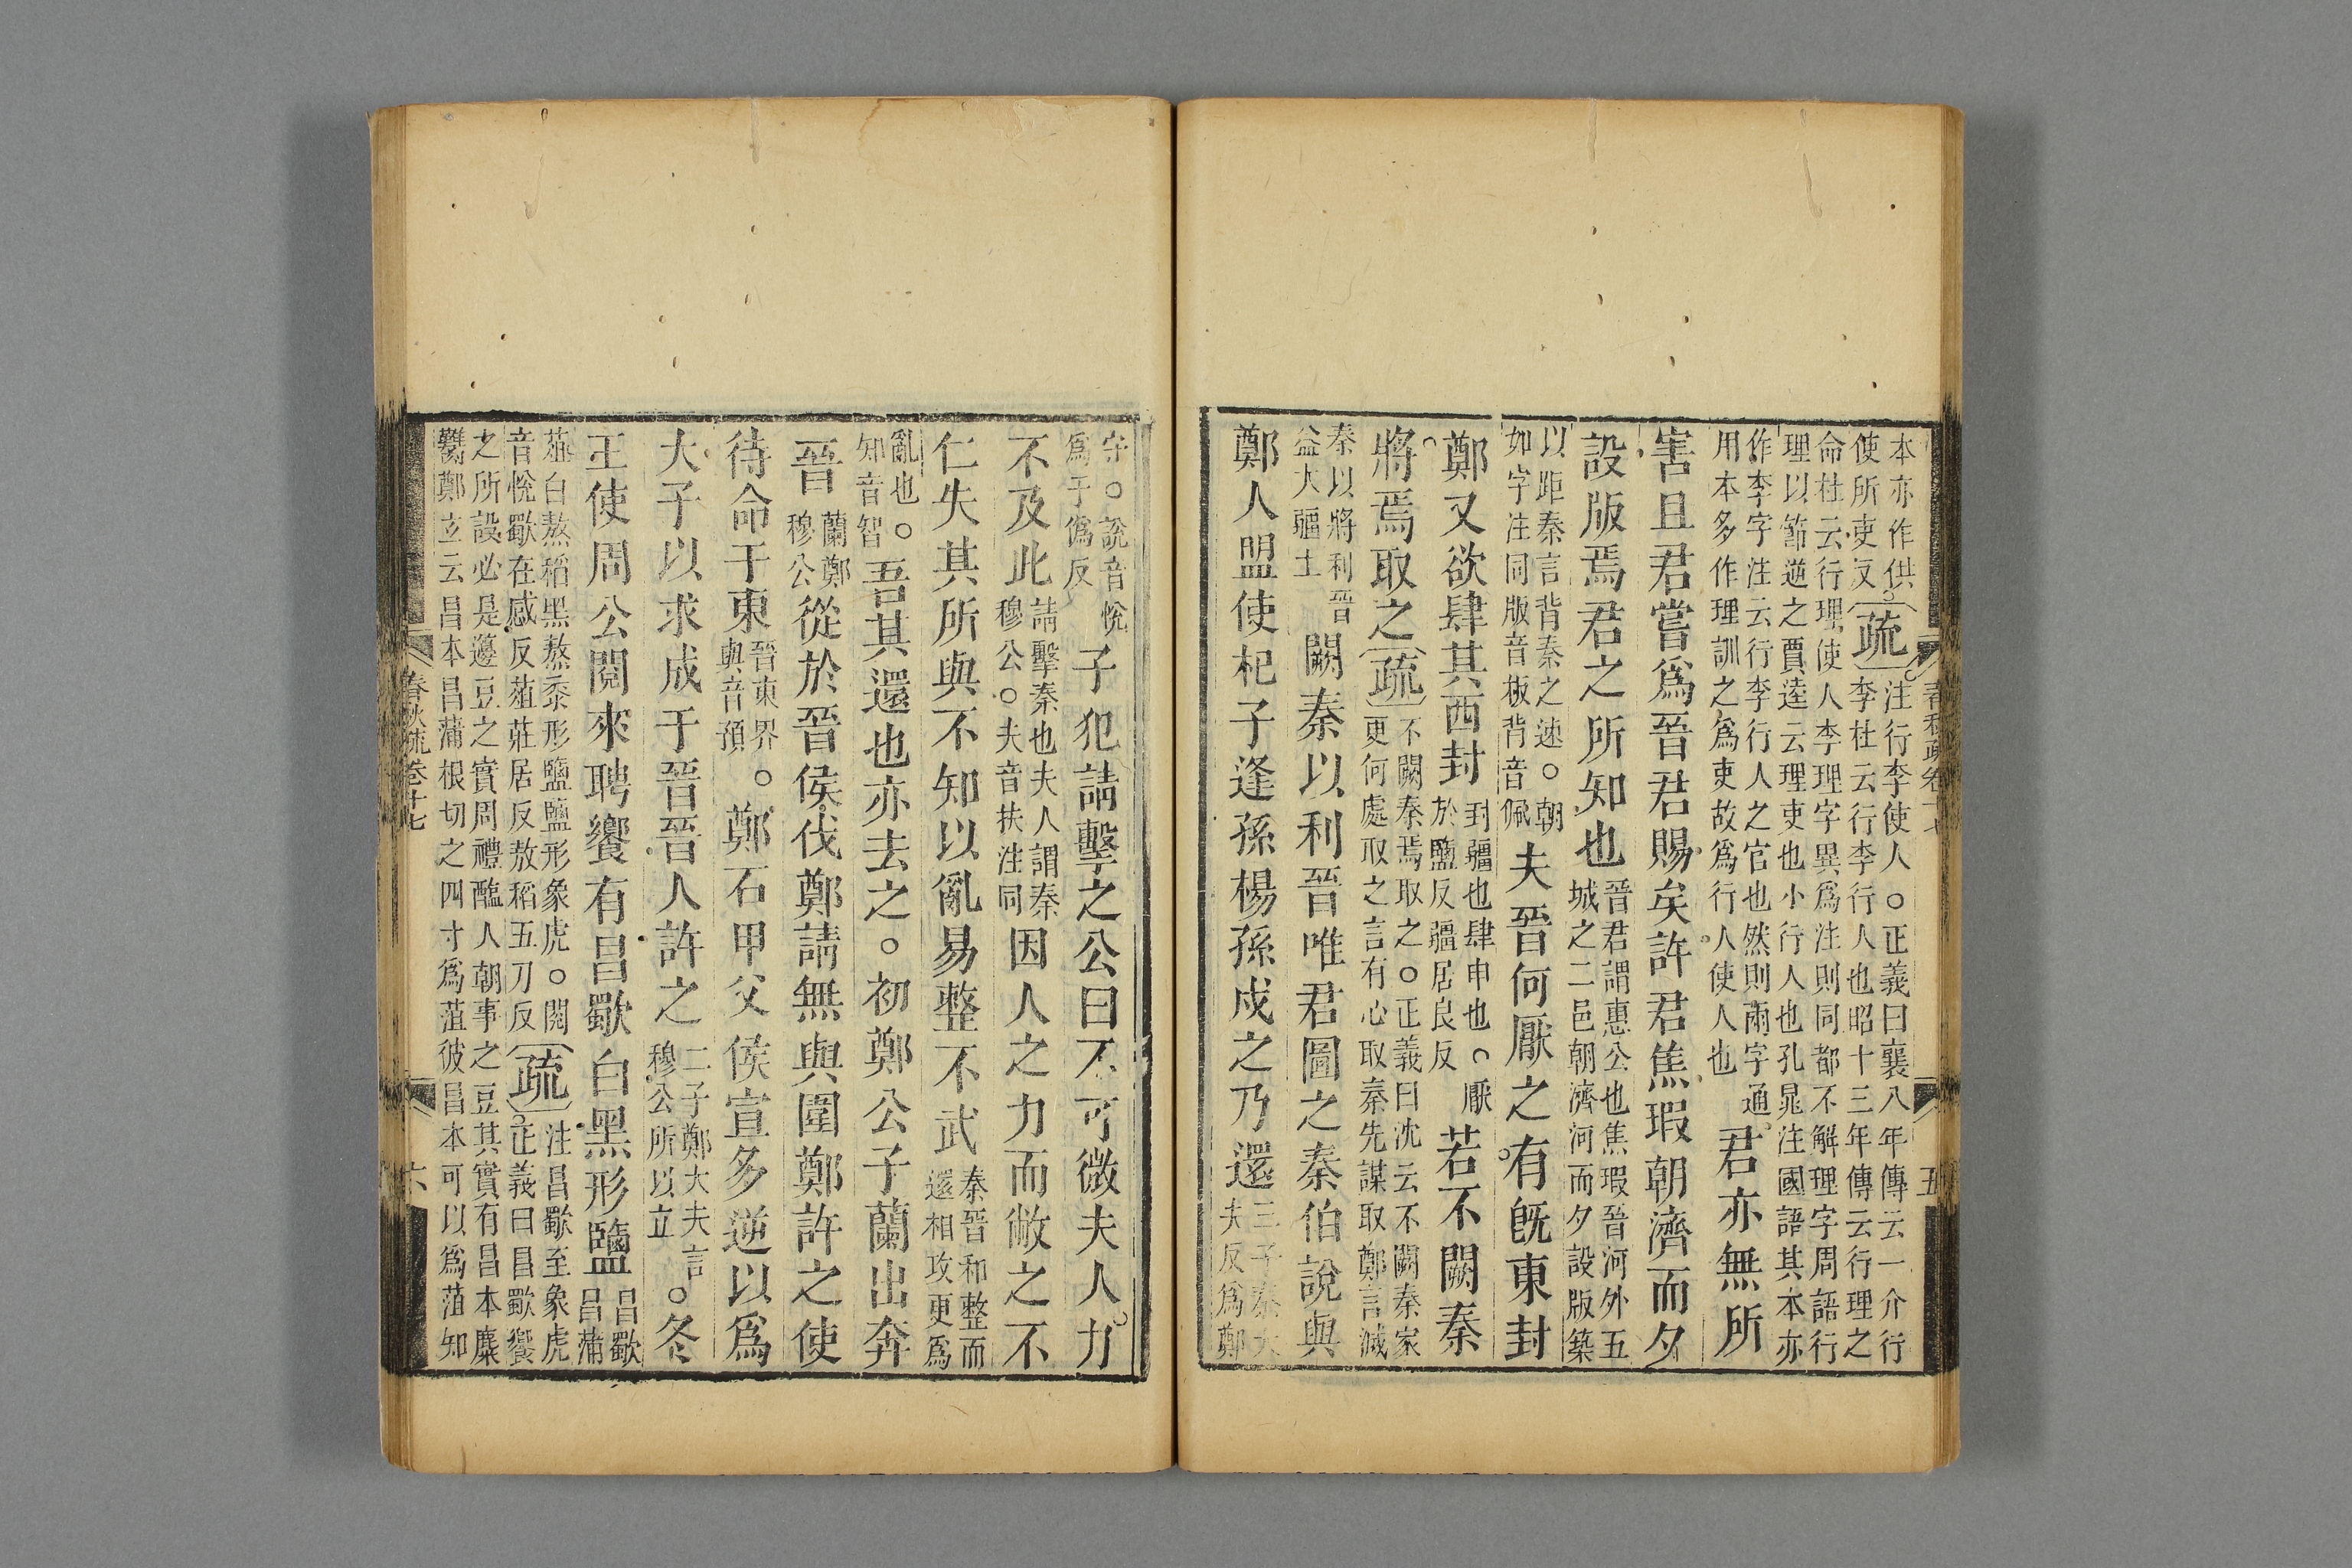 春秋疏卷十七
五
本亦作供
使所吏反疏注行李使人○正義曰襄八年傳云一介行
李杜云行李行人也昭十三年傳云行理之
命杜云行理使人李理字異爲注則同都不解理字周語行
理以節逆之賈逵云理吏也小行人也孔晁注國語其本亦
作李字注云行李行人之官也然則兩字通
用本多作理訓之爲吏故爲行人使人也
君亦無所
害且君嘗爲晉君賜矣許君焦瑕朝濟而夕
設版焉君之所知也
晉君謂惠公也焦瑕晉河外五
城之二邑朝濟河而夕設版築
以距秦言背秦之速○朝
如字注同版音板背音佩
夫晉何厭之有旣東封
鄭又欲肆其西封
封疆也肆申也○厭
於鹽反疆居良反
若不闕秦
將焉取之疏
不闕秦焉取之○正義曰沈云不闕秦家
更何處取之言有心取秦先謀取鄭言滅
秦以將利晉
益大疆土
闕秦以利晉唯君圖之秦伯說與
鄭人盟使杞子逢孫楊孫戍之乃還
三子秦大
夫反爲鄭
守○說音悅
爲于僞反
子犯請擊之公曰不可微夫人力
不及此
請擊秦也夫人謂秦
穆公○夫音扶注同
因人之力而敝之不
仁失其所與不知以亂易整不武
秦晉和整而
還相攻更爲
亂也○
知音智
吾其還也亦去之○初鄭公子蘭出奔
晉
蘭鄭
穆公
從於晉侯伐鄭請無與圍鄭許之使
待命于東
晉東界
與音預
○鄭石甲父侯宣多逆以爲
大子以求成于晉晉人許之
二子鄭大夫言
穆公所以立
○冬
王使周公閱來聘饗有昌歜白黑形鹽
昌歜
昌蒲
菹白熬稻黑熬黍形鹽鹽形象虎○閱
音悅歜在感反菹莊居反熬稻五刀反
疏
注昌歜至象虎
○正義曰昌歜饗
之所設必是籩豆之實周禮醢人朝事之豆其實有昌本麋
臡鄭玄云昌本昌蒲根切之四寸爲菹彼昌本可以爲菹知
春秋疏卷十七
六